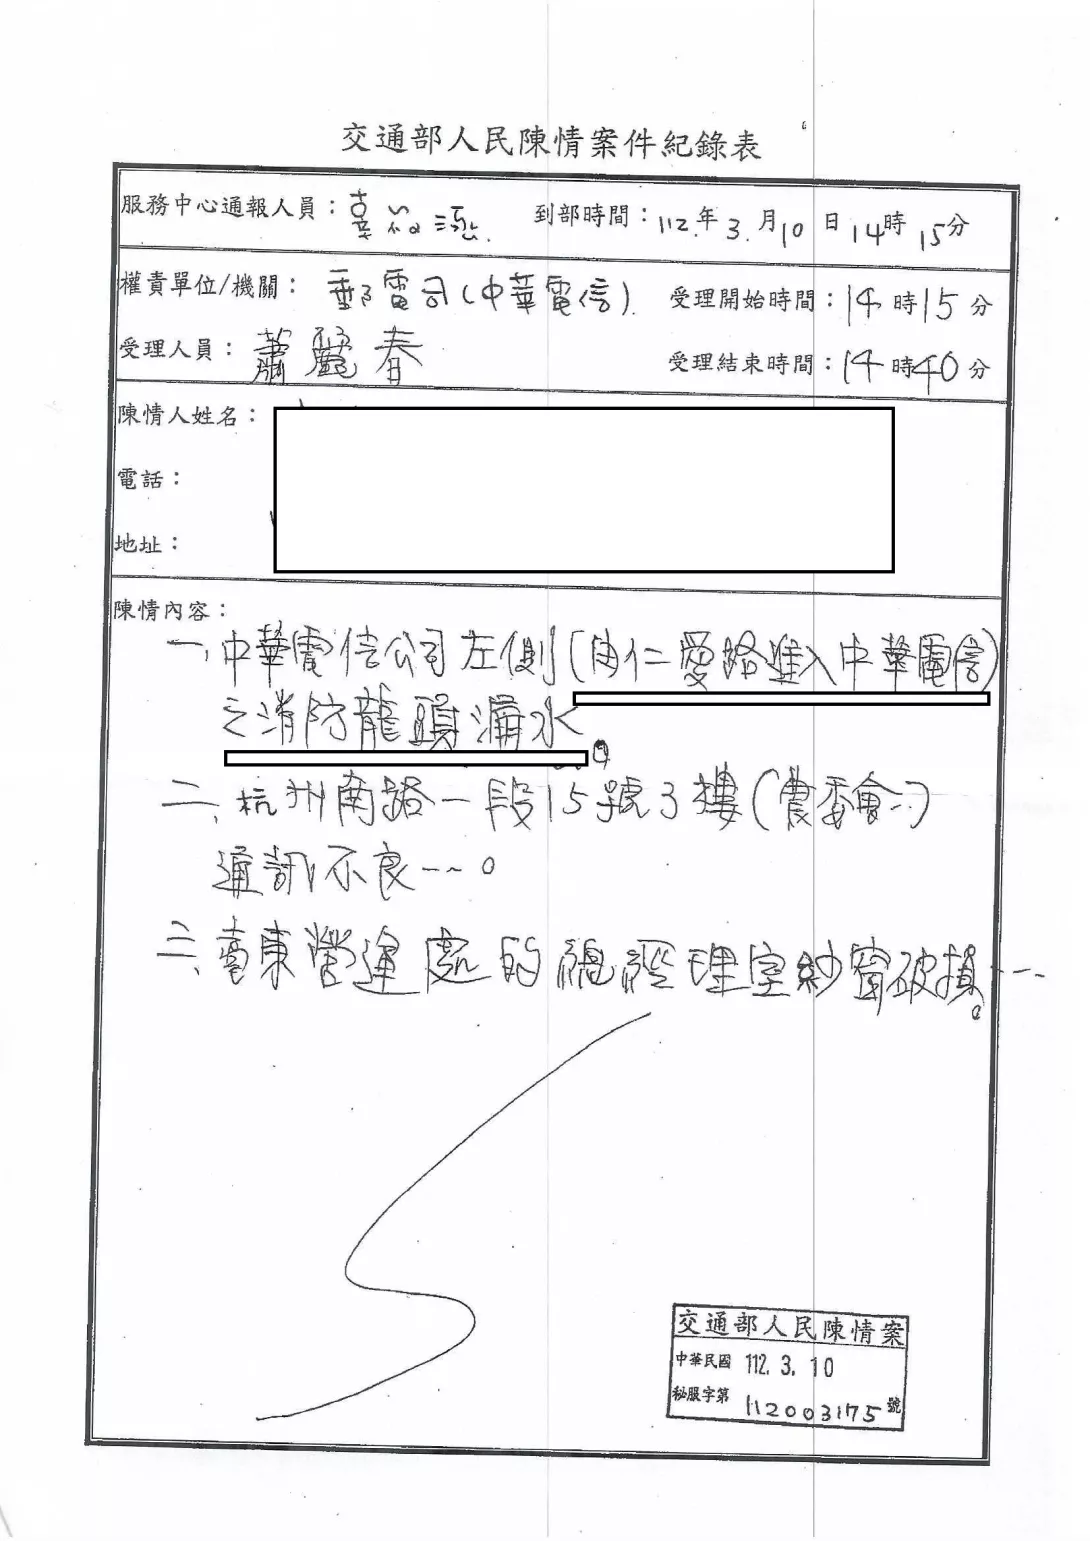 交通部人民陳情案件紀錄表
服務中心通報人員： 到部時間：112.年3.月10日14時15分
權責單位/機關：郵電司(中華電信). 受理開始時間：14時15分
受理人員：蕭麗春 受理結束時間：14時40分
陳情人姓名：
電話：
地址：
陳情內容：
一、中華電信公司左側(由仁愛路進入中華電信)
之消防龍頭漏水。
二、杭州南路一段15號3樓(農委會…)
通訊不良---。
三、臺東營運處的總經理室紗窗破損---。
交通部人民陳情案
中華民國 112. 3. 10
秘服字第 112003175 號